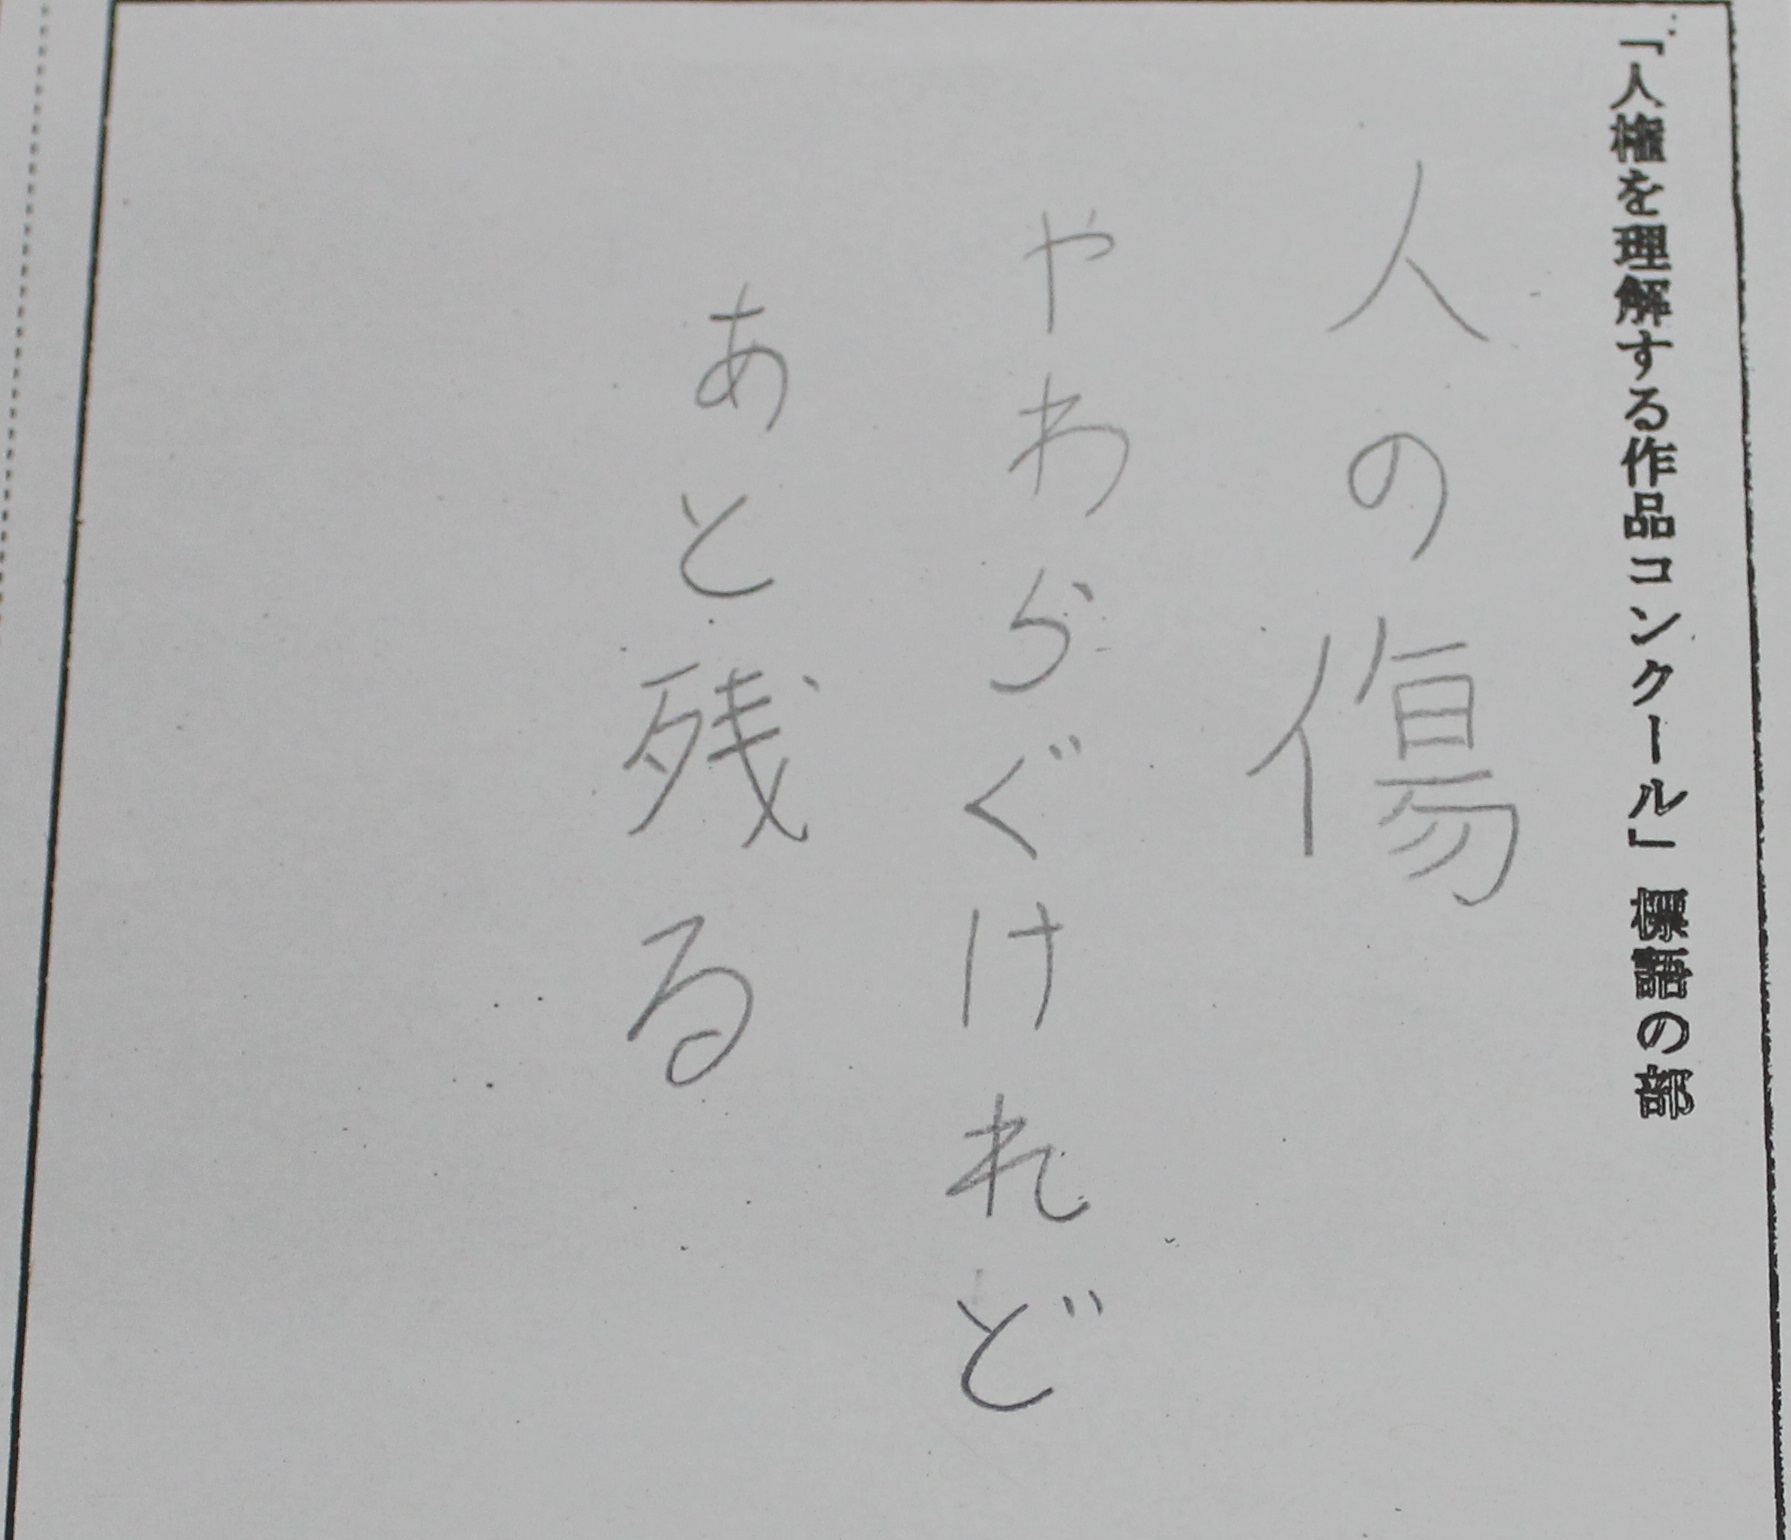 「人権を理解する作品コンクール」標語の部
人の傷
やわらぐけれど
あと残る